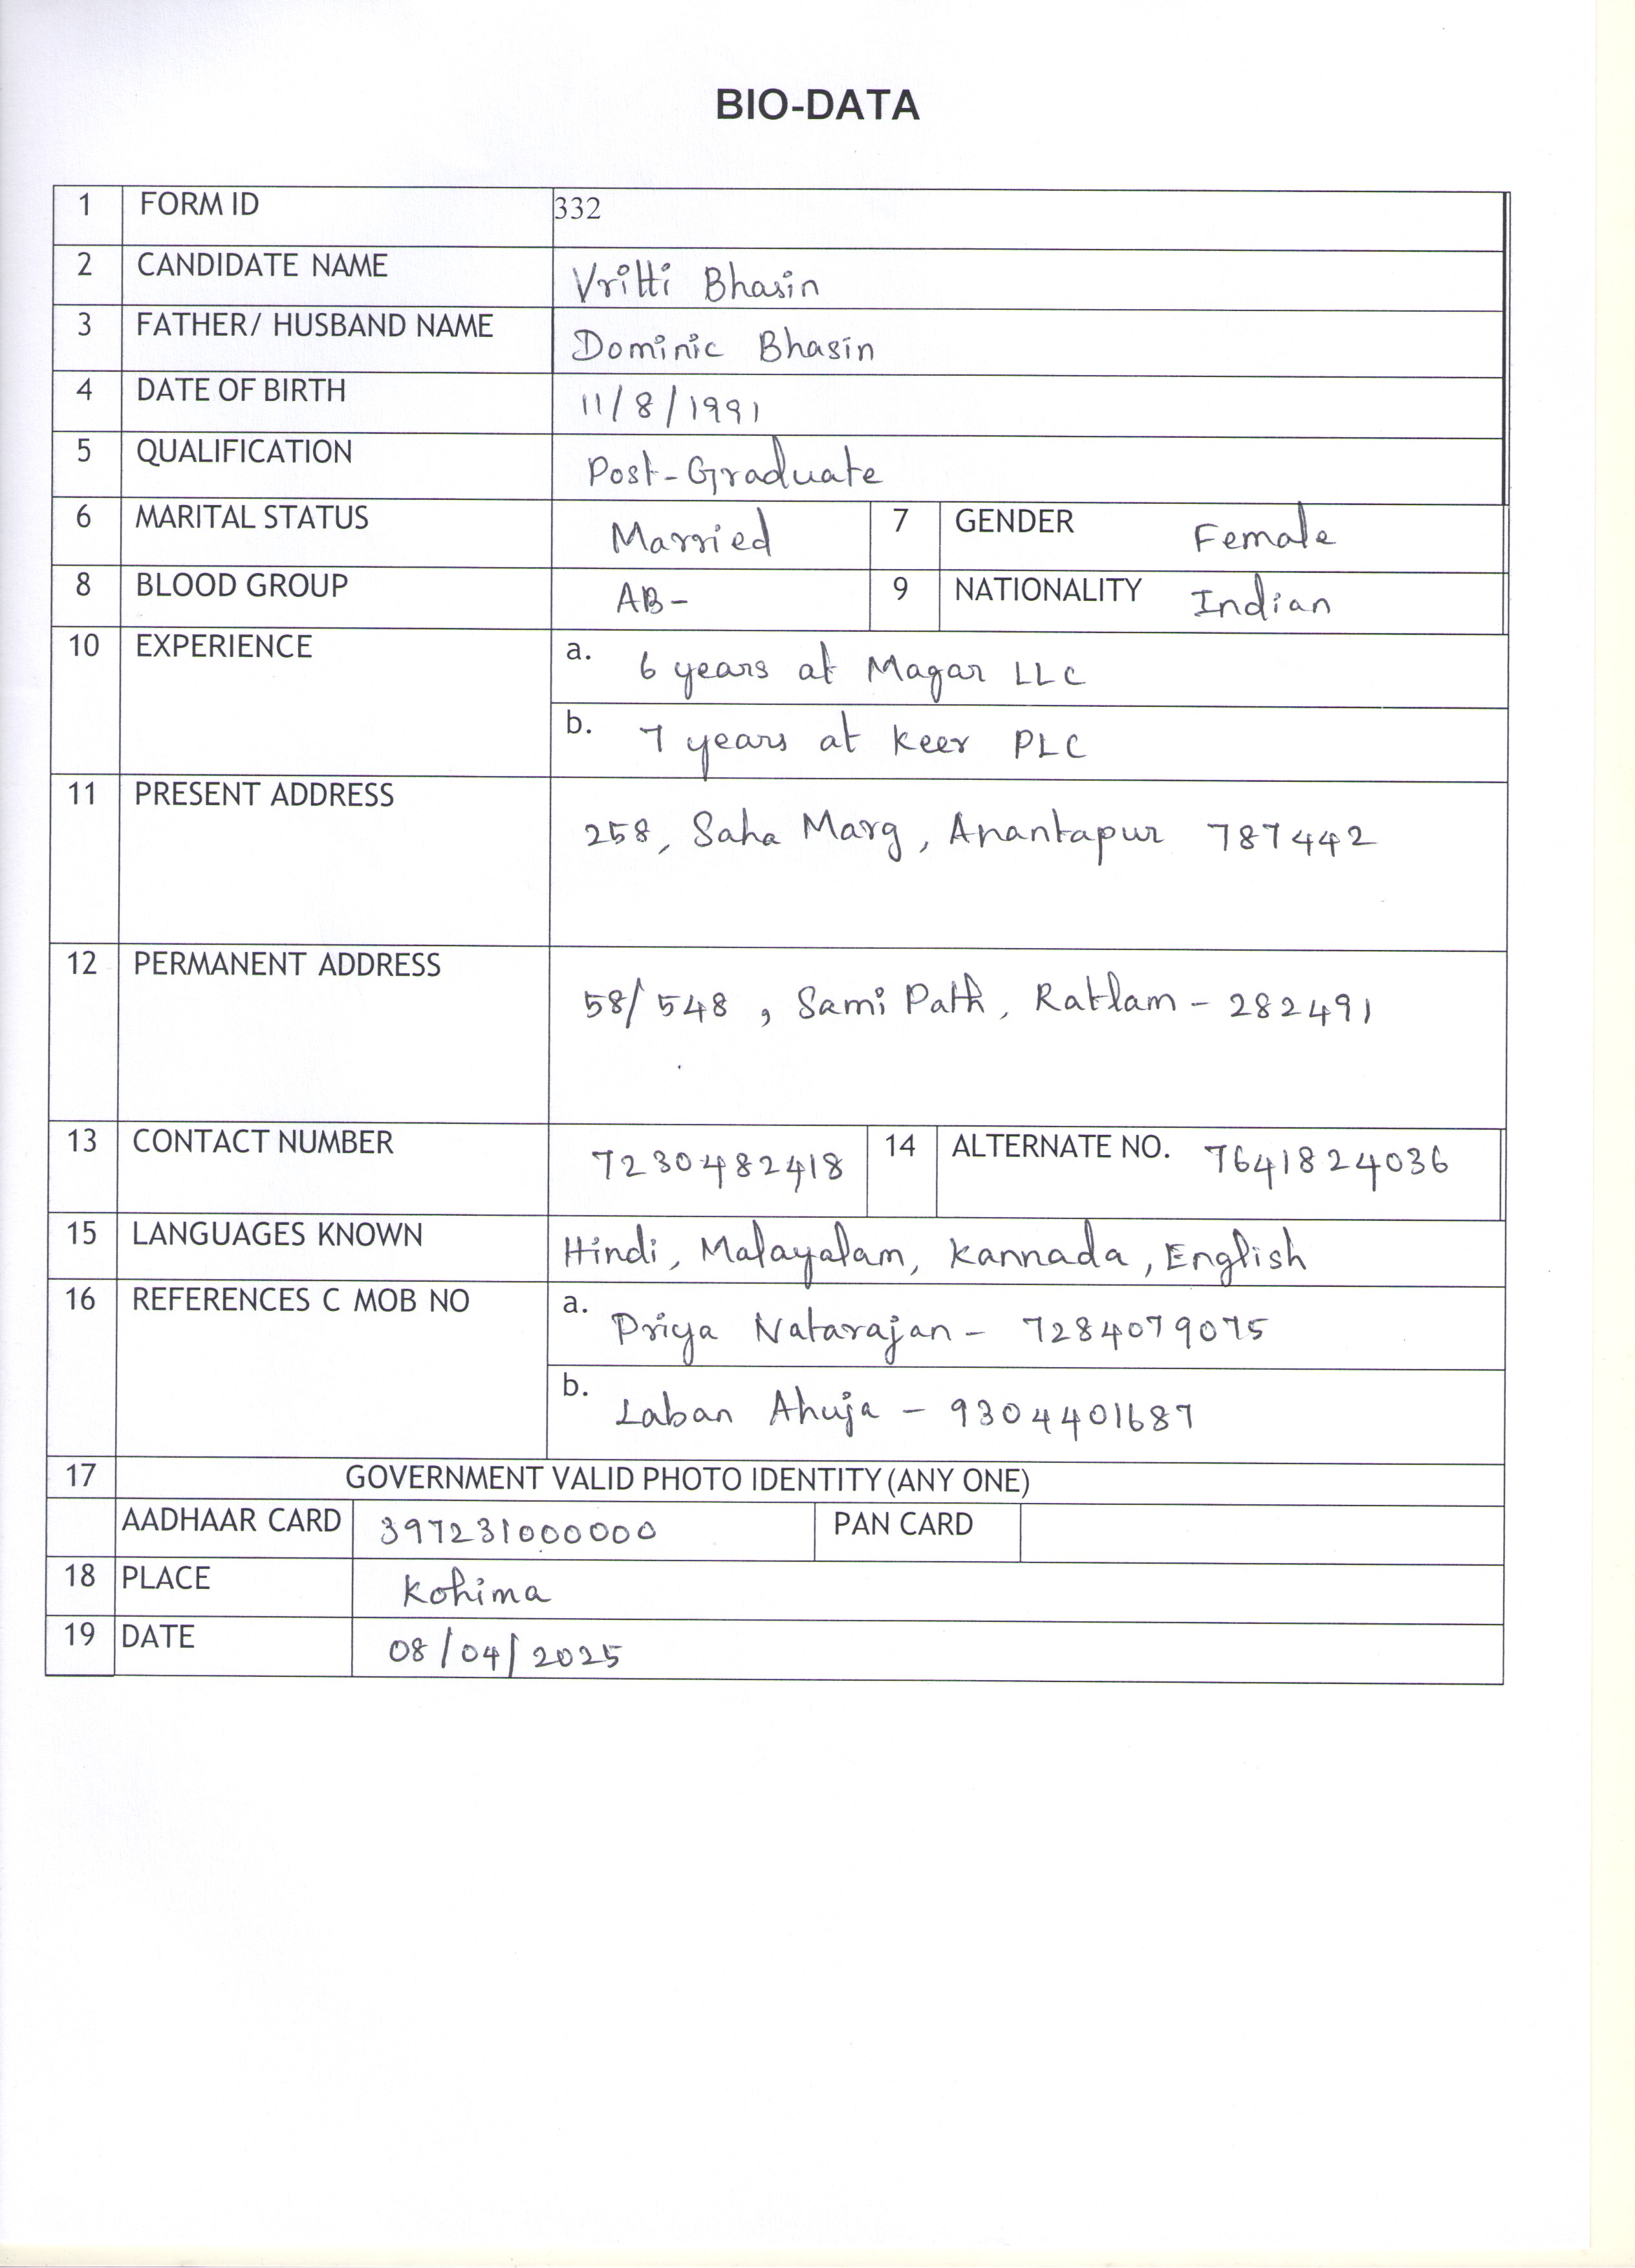 BIO-DATA
1 FORM ID 332
2 CANDIDATE NAME Vritti Bhasin
3 FATHER/ HUSBAND NAME Dominic Bhasin
4 DATE OF BIRTH 11/8/1991
5 QUALIFICATION Post-Graduate
6 MARITAL STATUS Married 7 GENDER Female
8 BLOOD GROUP AB- 9 NATIONALITY Indian
10 EXPERIENCE a. 6 years at Magar LLC
b. 7 years at Keer PLC
11 PRESENT ADDRESS 258, Saha Marg, Anantapur 787442
12 PERMANENT ADDRESS 58/548, Sami Path, Ratlam - 282491
13 CONTACT NUMBER 7230482418 14 ALTERNATE NO. 7641824036
15 LANGUAGES KNOWN Hindi, Malayalam, Kannada, English
16 REFERENCES C MOB NO a. Priya Natarajan - 7284079075
b. Laban Ahuja - 9304401687
17 GOVERNMENT VALID PHOTO IDENTITY (ANY ONE)
AADHAAR CARD 397231000000 PAN CARD
18 PLACE Kohima
19 DATE 08/04/2025